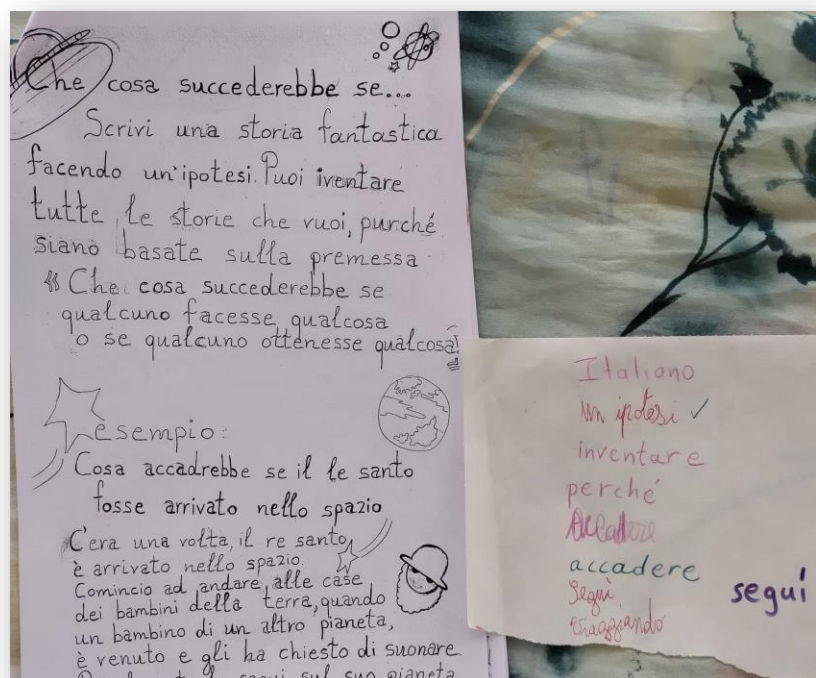 Che cosa succederebbe se...
Scrivi una storia fantastica
facendo un'ipotesi. Puoi iventare
tutte le storie che vuoi, purché
siano basate sulla premessa
« Che cosa succederebbe se
qualcuno facesse qualcosa
o se qualcuno ottenesse qualcosa!
esempio:
Cosa accadrebbe se il le santo
fosse arrivato nello spazio
C'era una volta, il re santo,
è arrivato nello spazio.
Comincio ad andare alle case
dei bambini della terra, quando
un bambino di un altro pianeta,
è venuto e gli ha chiesto di suonare
seguì sul suo pianeta
Italiano
un ipotesi ✓
inventare
perché
accadere
Seguì
viaggiando
seguì